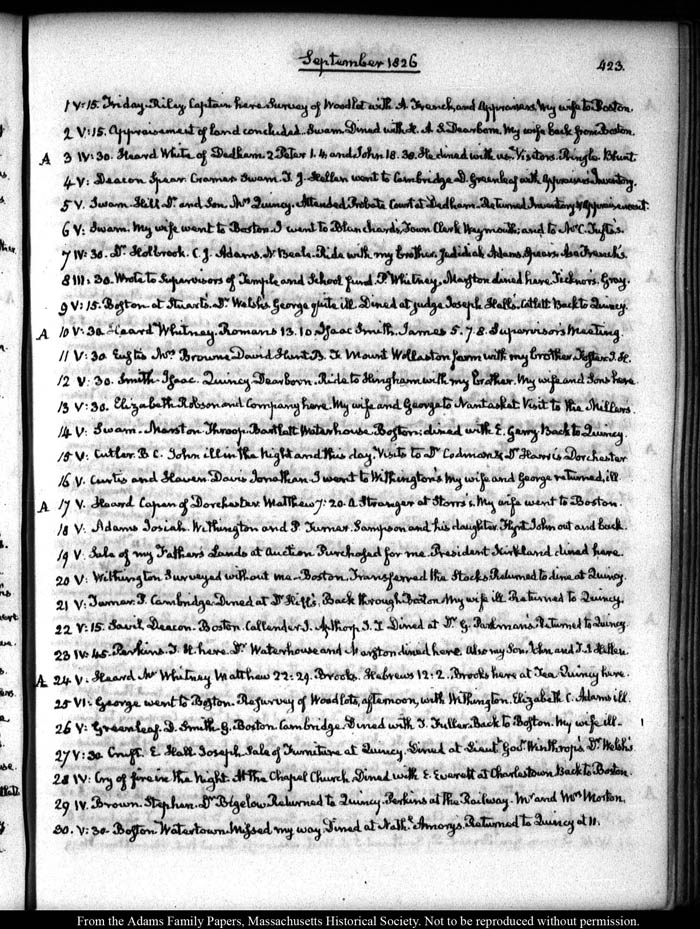 September 1826
423.
1 V:15. Friday. Riley, Captain here. Survey of Woodlot with A. French, and Appraisers. My wife to Boston.
2 V:15. Appraisement of land concluded. Swam. Dined with H. A. S. Dearborn. My wife back from Boston.
A 3 IV:30. Heard White of Dedham. 2 Peter 1.4 and John 18.38. He dined with us. Visitors. Pringle. Blunt.
4 V: Deacon Spear. Cramer. Swam. T. J. Hellen went to Cambridge. D. Greenleaf with Appraisers Inventory.
5 V. Swam. Hill Dr. and Son. Mrs Quincy. Attended Probate Court at Dedham. Returned Inventory & Appraisement.
6 V: Swam. My wife went to Boston. I went to Blanchard's, Town Clerk Weymouth; and to Mr C. Tufts.
7 IV:30. Dr. Holbrook. C. J. Adams. N Beale. Ride with my brother. Jedidiah Adams. Spears. Asa French's.
8 III:30. Wrote to Supervisors of Temple and School fund. P. Whitney. Marston dined here. Ticknors. Gray.
9 V:15. Boston. at Stuarts. Dr. Welsh's George quite ill. Dined at judge Joseph Halls. Catlett. Back to Quincy.
A 10 V:30. Heard Whitney. Romans 13.10. Isaac Smith. James 5.7.8. Supervisors Meeting.
11 V:30 Eustis Mrs. Browne. David Hunt. B. T. Mount Wollaston farm with my brother. Foster J. H.
12 V:30. Smith. Isaac. Quincy. Dearborn. Ride to Hingham with my brother. My wife and Sons here
13 V:30. Elizabeth Robson and Company here. My wife and George to Nantasket. Visit to the Millers.
14 V: Swam. Marston. Throop. Bartlett. Waterhouse. Boston; dined with E. Gerry. Back to Quincy.
15 V: Cutler. B. C. John ill in the Night and this day. Visits to Dr Codman & Dr Harris Dorchester
16 V. Curtis and Haven. Davis Jonathan. I went to Withington's. My wife and George returned, ill
A 17 V. Heard Capen of Dorchester. Matthew 7:20. A Stranger at Storrs's. My wife went to Boston.
18 V. Adams Josiah. Withington and P. Turner. Sampson and his daughter. Flynt. John out and back.
19 V. Sale of my Fathers Lands at Auction. Purchased for me. President Kirkland dined here.
20 V: Withington. Surveyed without me. Boston. Transferred the Stocks. Returned to dine at Quincy.
21 V: Turner. P. Cambridge. Dined at Dr Hill's. Back through Boston. My wife ill. Returned to Quincy.
22 V:15. Savil, Deacon. Boston. Callender J. Apthorp. J. T. Dined at Dr. G. Parkman's. Returned to Quincy.
23 IV:45. Perkins. T. H. here. Dr. Waterhouse and Marston dined here. Also my Son John, and T. J. Hellen.
A 24 V. Heard Mr Whitney. Matthew 22:29. Brooks. Hebrews 12:2. Brooks here at Tea. Quincy here.
25 VI: George went to Boston. Resurvey of Woodlots, afternoon, with Withington. Elizabeth C. Adams ill.
26 V: Greenleaf. D. Smith. G. Boston. Cambridge. Dined with T. Fuller. Back to Boston. My wife ill.
27 V:30 Cruft. E. Hall Joseph. Sale of Furniture at Quincy. Dined at Lieut. Govr Winthrop's. Dr. Welsh's.
28 IV: Cry of fire in the Night. At the Chapel Church. Dined with E. Everett at Charlestown. Back to Boston.
29 IV. Brown. Stephen. Dr Bigelow. Returned to Quincy. Perkins at the Railway. Mr and Mrs Morton.
30. V:30. Boston. Watertown. Missed my way. Dined at Nathl. Amory's. Returned to Quincy at 11.
From the Adams Family Papers, Massachusetts Historical Society. Not to be reproduced without permission.